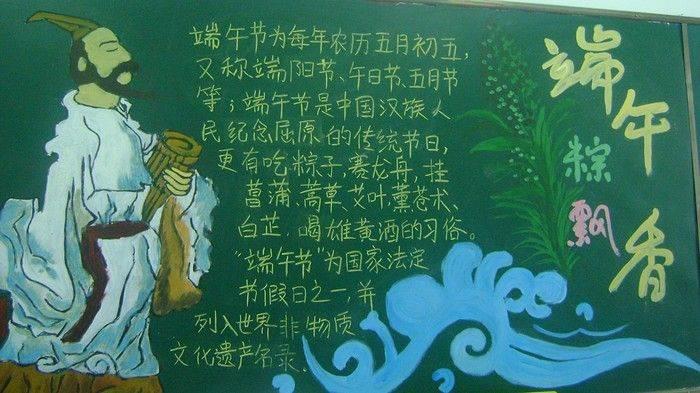 端午节为每年农历五月初五,
又称端阳节、午日节、五月节
等；端午节是中国汉族人
民纪念屈原的传统节日,
更有吃粽子,赛龙舟,挂
菖蒲、蒿草、艾叶,薰苍术、
白芷,喝雄黄酒的习俗。
“端午节”为国家法定
节假日之一,并
列入世界非物质
文化遗产名录.
端午
粽飘
香